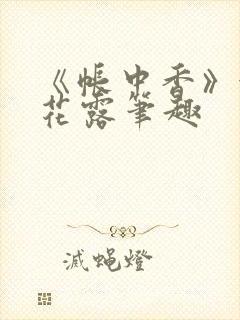 《帐中香》
花露笔趣
滅蝇燈